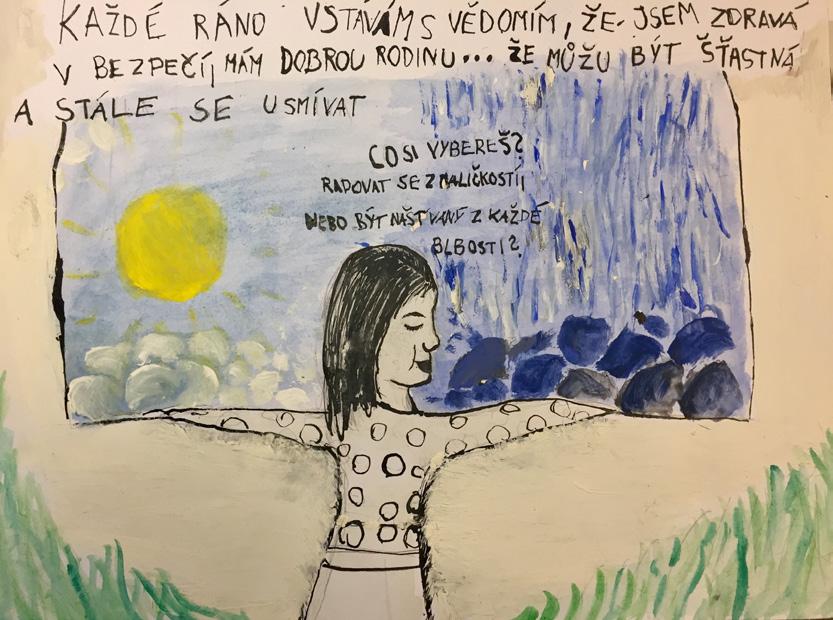 KAŽDÉ RÁNO VSTÁVÁM S VĚDOMÍM, ŽE JSEM ZDRAVÁ
V BEZPEČÍ, MÁM DOBROU RODINU... ŽE MŮŽU BÝT ŠŤASTNÁ
A STÁLE SE USMÍVAT
CO SI VYBEREŠ?
RADOVAT SE Z MALIČKOSTÍ,
NEBO BÝT NAŠTVANÝ Z KAŽDÉ
BLBOSTI?